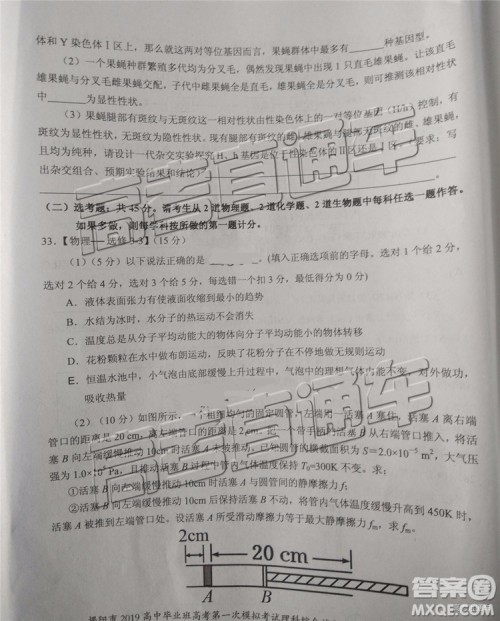 体和 Y 染色体Ⅰ区上，那么就这两对等位基因而言，果蝇群体中最多有________种基因型。
（2）一个果蝇种群繁殖多代均为分叉毛，偶然发现果蝇中出现 1 只直毛雌果蝇，让该直毛
雌果蝇与分叉毛雌果蝇交配，子代中雌果蝇全是直毛，雄果蝇全是分叉毛，则可推测该相对性状
中______为显性性状。
（3）果蝇腿部有斑纹与无斑纹这一相对性状由性染色体上的一对等位基因（H/h）控制，有
斑纹为显性性状，无斑纹为隐性性状，现有腿部有斑纹的雌、雄果蝇与腿部无斑纹的雌、雄果蝇，
且均为纯种，请设计一代杂交实验探究 H、h 基因是位于性染色体的Ⅱ区还是Ⅰ区。（要求：写
出杂交组合、预期实验结果和结论）
（二）选考题：共 45 分。请考生从 2 道物理题、2 道化学题、2 道生物题中每科任选一题作答。
如果多做，则每学科按所做的第一题计分。
33.【物理——选修 3-3】(15 分)
（1）（5 分）以下说法正确的是______（填入正确选项前的字母。选对 1 个给 2 分，
选对 2 个给 4 分，选对 3 个给 5 分，每选错一个扣 3 分，最低得分为 0 分）
A．液体表面张力有使液面收缩到最小的趋势
B．水结为冰时，水分子的热运动不会消失
C．温度总是从分子平均动能大的物体向分子平均动能小的物体转移
D．花粉颗粒在水中做布朗运动，反映了花粉分子在不停地做无规则运动
E．恒温水池中，小气泡由底部缓慢上升过程中，气泡中的理想气体内能不变，对外做功，
吸收热量
（2）（10 分）如图所示，一个粗细均匀的固定圆管，左端用一活塞 A 塞住，活塞 A 离右端
管口的距离是 20 cm，左端口的距离是 2cm，把一个带手柄的活塞 B 从右端管口推入，将活
塞 B 向左端缓慢推动 10cm 时活塞 A 未被推动。已知圆管的横截面积 S=2.0×10⁻⁵ m²，大气压
强为 1.0×10⁵ Pa，且推动活塞 B 过程中管内气体温度保持 T₀=300K 不变。求：
①活塞 B 向左端缓慢推动 10cm 后活塞 A 与圆管间的静摩擦力 f；
②活塞 B 向左端缓慢推动 10cm 后保持活塞 B 不动，将管内气体温度缓慢升高到 450K 时，
活塞 A 被推到左端管口处。设活塞 A 所受滑动摩擦力等于最大静摩擦力 fm，求 fm。
2cm
20 cm
A B
揭阳市 2019 高中毕业班高考第一次模拟考试理科综合
高考直通车
高考直通车
答案圈
MXQE.COM